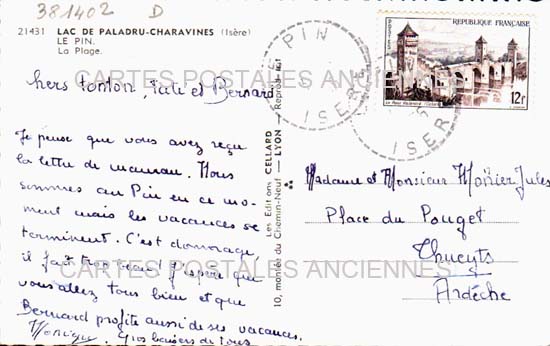 381402 D
21431 LAC DE PALADRU-CHARAVINES (Isère)
LE PIN.
La Plage.
Chers tonton, Tata et Bernard.
Je pense que vous avez reçu
la lettre de maman. Nous
sommes au Pin en ce mo-
ment mais les vacances se
terminent. C'est dommage,
il fait trop beau! J'espère que
vous allez tous bien et que
Bernard profite aussi de ses vacances.
Monique. Gros baisers de tous
Les Editions CELLARD
10, montée du Chemin-Neuf — LYON — Reprod. int
LE PIN
ISERE
ISERE
REPUBLIQUE FRANÇAISE
POSTES
Le Pont Valentré (Cahors)
12f
Madame et Monsieur Jules
Place du Pouget
Thueyts
Ardèche
CARTES POSTALES ANCIENNES
CARTES POSTALES ANCIENNES